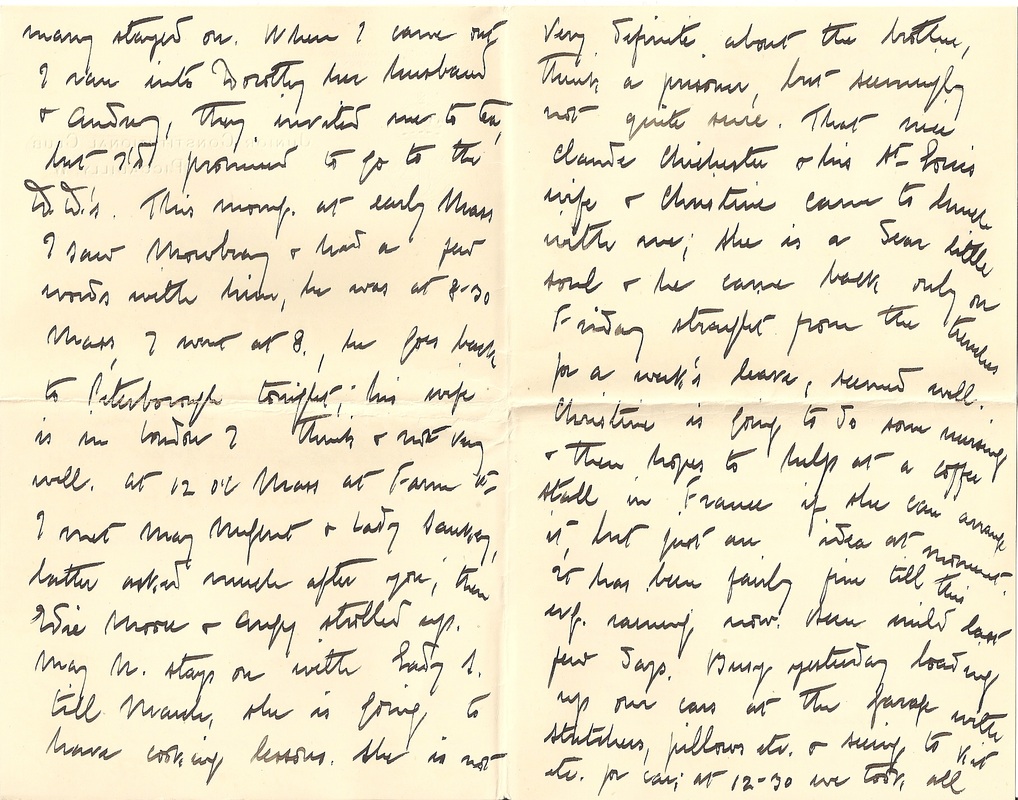 many stayed on. When I came out
I ran into Dorothy her husband
& Audrey, they invited me to tea,
but I'd promised to go to the
D.D.'s. This morng. at early Mass
I saw Mowbray & had a few
words with him, he was at 8-30
Mass, I went at 8., he goes back
to Peterborough tonight; his wife
is in London I think & not very
well. at 12 oc Mass at Farm St-
I met May Nugent & Lady Sankey,
latter asked much after you; then
Edie Moore & Angy strolled up.
May N. stays on with Lady S.
till March, she is going to
have cooking lessons. She is not
very definite about the brother,
thinks a prisoner, but seemingly
not quite sure. That nice
Claude Chichester & his St- Louis
wife & Christine came to lunch
with me; she is a dear little
soul & he came back only on
Friday straight from the trenches
for a week's leave, seemed well.
Christine is going to do some nursing
& then hopes to help at a coffee
stall in France if she can arrange
it, but just an idea at moment.
It has been fairly fine till this
evg. raining now. Been mild last
few days. Busy yesterday loading
up our cars at the garage with
stretchers, pillows etc. & seeing to kit
etc. for car; at 12-30 we took all
JUNIOR CONSTITUTIONAL CLUB
PICCADILLY. W.